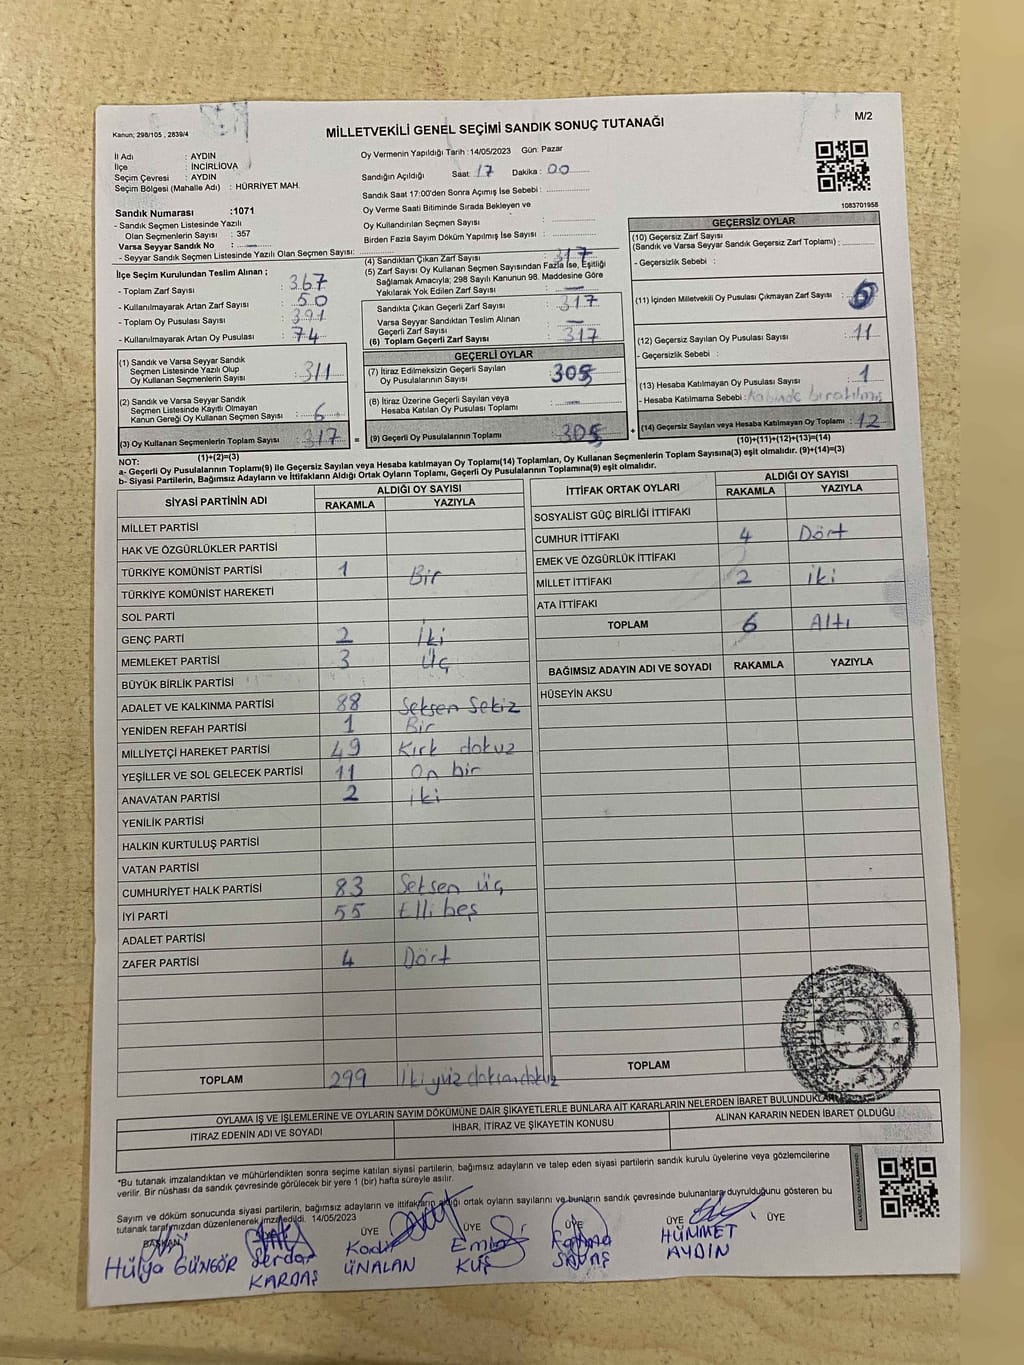 Kanun; 298/105 , 2839/4
MİLLETVEKİLİ GENEL SEÇİMİ SANDIK SONUÇ TUTANAĞI
M/2
İl Adı : AYDIN
İlçe : İNCİRLİOVA
Seçim Çevresi : AYDIN
Seçim Bölgesi (Mahalle Adı) : HÜRRİYET MAH.
Oy Vermenin Yapıldığı Tarih : 14/05/2023 Gün: Pazar
Sandığın Açıldığı Saat : 17 Dakika : 00
Sandık Saat 17:00'den Sonra Açımış İse Sebebi :
Oy Verme Saati Bitiminde Sırada Bekleyen ve
Oy Kullandırılan Seçmen Sayısı :
Birden Fazla Sayım Döküm Yapılmış İse Sayısı :
1083701958
Sandık Numarası :1071
- Sandık Seçmen Listesinde Yazılı
Olan Seçmenlerin Sayısı : 357
Varsa Seyyar Sandık No : —
- Seyyar Sandık Seçmen Listesinde Yazılı Olan Seçmen Sayısı:
İlçe Seçim Kurulundan Teslim Alınan ;
- Toplam Zarf Sayısı : 367
- Kullanılmayarak Artan Zarf Sayısı : 50
- Toplam Oy Pusulası Sayısı : 391
- Kullanılmayarak Artan Oy Pusulası : 74
(1) Sandık ve Varsa Seyyar Sandık
Seçmen Listesinde Yazılı Olup
Oy Kullanan Seçmenlerin Sayısı : 311
(2) Sandık ve Varsa Seyyar Sandık
Seçmen Listesinde Kayıtlı Olmayan
Kanun Gereği Oy Kullanan Seçmen Sayısı : 6
(3) Oy Kullanan Seçmenlerin Toplam Sayısı : 317
(1)+(2)=(3)
(4) Sandıktan Çıkan Zarf Sayısı : 317
(5) Zarf Sayısı Oy Kullanan Seçmen Sayısından Fazla İse, Eşitliği
Sağlamak Amacıyla; 298 Sayılı Kanunun 98. Maddesine Göre
Yakılarak Yok Edilen Zarf Sayısı : —
Sandıkta Çıkan Geçerli Zarf Sayısı : 317
Varsa Seyyar Sandıktan Teslim Alınan
Geçerli Zarf Sayısı : —
(6) Toplam Geçerli Zarf Sayısı : 317
GEÇERLİ OYLAR
(7) İtiraz Edilmeksizin Geçerli Sayılan
Oy Pusulalarının Sayısı : 305
(8) İtiraz Üzerine Geçerli Sayılan veya
Hesaba Katılan Oy Pusulası Toplamı : —
= (9) Geçerli Oy Pusulalarının Toplamı : 305 +
GEÇERSİZ OYLAR
(10) Geçersiz Zarf Sayısı
(Sandık ve Varsa Seyyar Sandık Geçersiz Zarf Toplamı) :
- Geçersizlik Sebebi :
(11) İçinden Milletvekili Oy Pusulası Çıkmayan Zarf Sayısı :
(12) Geçersiz Sayılan Oy Pusulası Sayısı : 11
- Geçersizlik Sebebi :
(13) Hesaba Katılmayan Oy Pusulası Sayısı : 1
- Hesaba Katılmama Sebebi : Kabinde bıratılmış
(14) Geçersiz Sayılan veya Hesaba Katılmayan Oy Toplamı : 12
(10)+(11)+(12)+(13)=(14)
NOT:
a- Geçerli Oy Pusulalarının Toplamı(9) ile Geçersiz Sayılan veya Hesaba katılmayan Oy Toplamı(14) Toplamları, Oy Kullanan Seçmenlerin Toplam Sayısına(3) eşit olmalıdır. (9)+(14)=(3)
b- Siyasi Partilerin, Bağımsız Adayların ve İttifakların Aldığı Ortak Oyların Toplamı, Geçerli Oy Pusulalarının Toplamına(9) eşit olmalıdır.
SİYASİ PARTİNİN ADI ALDIĞI OY SAYISI
RAKAMLA YAZIYLA
MİLLET PARTİSİ
HAK VE ÖZGÜRLÜKLER PARTİSİ
TÜRKİYE KOMÜNİST PARTİSİ 1 Bir
TÜRKİYE KOMÜNİST HAREKETİ
SOL PARTİ
GENÇ PARTİ 2 İki
MEMLEKET PARTİSİ 3 Üç
BÜYÜK BİRLİK PARTİSİ
ADALET VE KALKINMA PARTİSİ 88 Seksen Sekiz
YENİDEN REFAH PARTİSİ 1 Bir
MİLLİYETÇİ HAREKET PARTİSİ 49 Kırk dokuz
YEŞİLLER VE SOL GELECEK PARTİSİ 11 On bir
ANAVATAN PARTİSİ 2 iki
YENİLİK PARTİSİ
HALKIN KURTULUŞ PARTİSİ
VATAN PARTİSİ
CUMHURİYET HALK PARTİSİ 83 Seksen üç
İYİ PARTİ 55 Elli beş
ADALET PARTİSİ
ZAFER PARTİSİ 4 Dört
TOPLAM 299 İki yüz doksan dokuz
İTTİFAK ORTAK OYLARI ALDIĞI OY SAYISI
RAKAMLA YAZIYLA
SOSYALİST GÜÇ BİRLİĞİ İTTİFAKI
CUMHUR İTTİFAKI 4 Dört
EMEK VE ÖZGÜRLÜK İTTİFAKI
MİLLET İTTİFAKI 2 iki
ATA İTTİFAKI
TOPLAM 6 Altı
BAĞIMSIZ ADAYIN ADI VE SOYADI RAKAMLA YAZIYLA
HÜSEYİN AKSU
TOPLAM
OYLAMA İŞ VE İŞLEMLERİNE VE OYLARIN SAYIM DÖKÜMÜNE DAİR ŞİKAYETLERLE BUNLARA AİT KARARLARIN NELERDEN İBARET BULUNDUKLARI
İTİRAZ EDENİN ADI VE SOYADI İHBAR, İTİRAZ VE ŞİKAYETİN KONUSU ALINAN KARARIN NEDEN İBARET OLDUĞU
*Bu tutanak imzalandıktan ve mühürlendikten sonra seçime katılan siyasi partilerin, bağımsız adayların ve talep eden siyasi partilerin sandık kurulu üyelerine veya gözlemcilerine
verilir. Bir nüshası da sandık çevresinde görülecek bir yere 1 (bir) hafta süreyle asılır.
Sayım ve döküm sonucunda siyasi partilerin, bağımsız adayların ve ittifakların aldığı ortak oyların sayılarını ve bunların sandık çevresinde bulunanlara duyrulduğunu gösteren bu
tutanak tarafımızdan düzenlenerek imza edildi. 14/05/2023
BAŞKAN ÜYE ÜYE ÜYE ÜYE ÜYE
Hülya GÜNGÖR Serdar KARDAŞ Kadir ÜNALAN Emine KUŞ Fatma SAVAŞ HÜMMET AYDIN